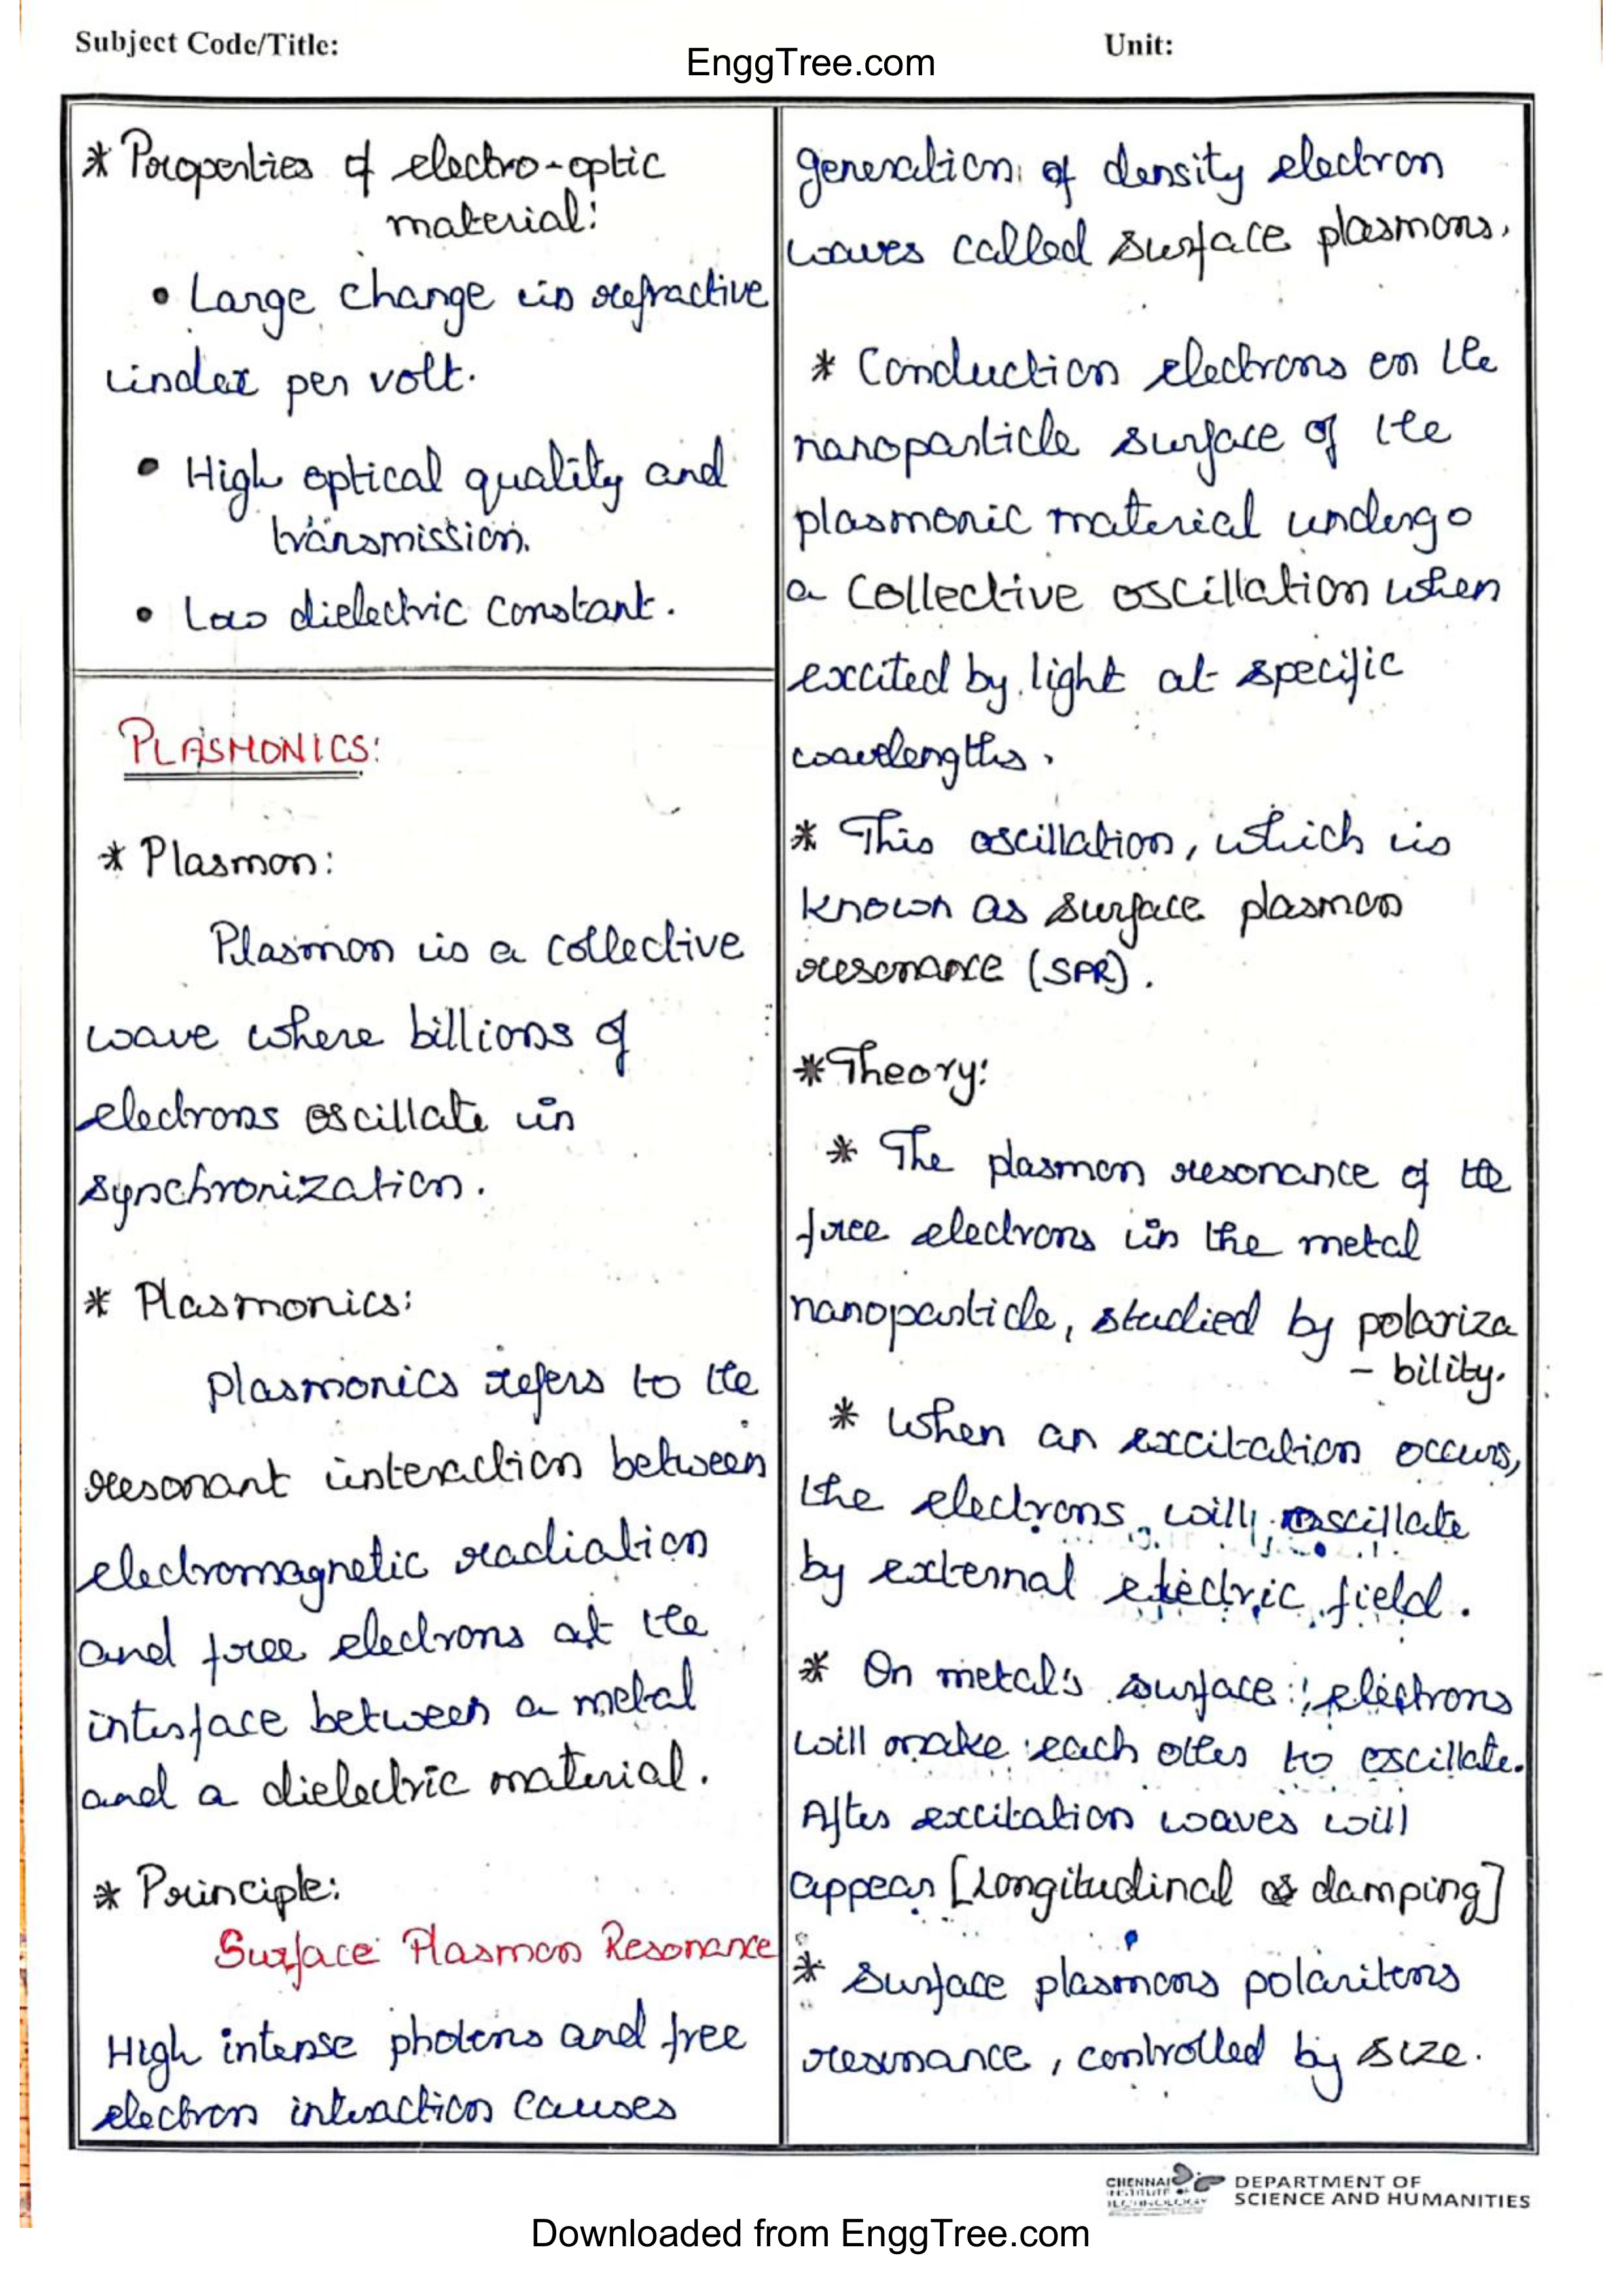 Subject Code/Title:
EnggTree.com
Unit:
* Properties of electro-optic
material:
• Large change in refractive
index per volt.
• High optical quality and
transmission.
• Low dielectric constant.
PLASMONICS:
* Plasmon:
Plasmon is a collective
wave where billions of
electrons oscillate in
synchronization.
* Plasmonics:
Plasmonics refers to the
resonant interaction between
electromagnetic radiation
and free electrons at the
interface between a metal
and a dielectric material.
* Principle:
Surface Plasmon Resonance
High intense photons and free
electron interaction causes
generation of density electron
waves called surface plasmons.
* Conduction electrons on the
nanoparticle surface of the
plasmonic material undergo
a collective oscillation when
excited by light at specific
wavelengths.
* This oscillation, which is
known as surface plasmon
resonance (SPR).
* Theory:
* The plasmon resonance of the
free electrons in the metal
nanoparticle, studied by polariza
- bility.
* When an excitation occurs,
the electrons will oscillate
by external electric field.
* On metal's surface electrons
will make each other to oscillate.
After excitation waves will
appear [Longitudinal damping]
* Surface plasmons polaritons
resonance, controlled by size.
CHENNAI
INSTITUTE OF
TECHNOLOGY
DEPARTMENT OF
SCIENCE AND HUMANITIES
Downloaded from EnggTree.com